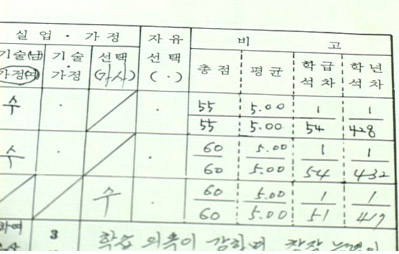 실업 · 가정 자유 선택 비 고
기술(남) 가정(여) 기술 · 가정 선택 (가사) (·) 총점 평균 학급 석차 학년 석차
수 · 55/55 5.00/5.00 1/54 1/428
수 · 60/60 5.00/5.00 1/54 1/432
수 · 60/60 5.00/5.00 1/51 1/419
하여 3 학습 의욕이 강하며